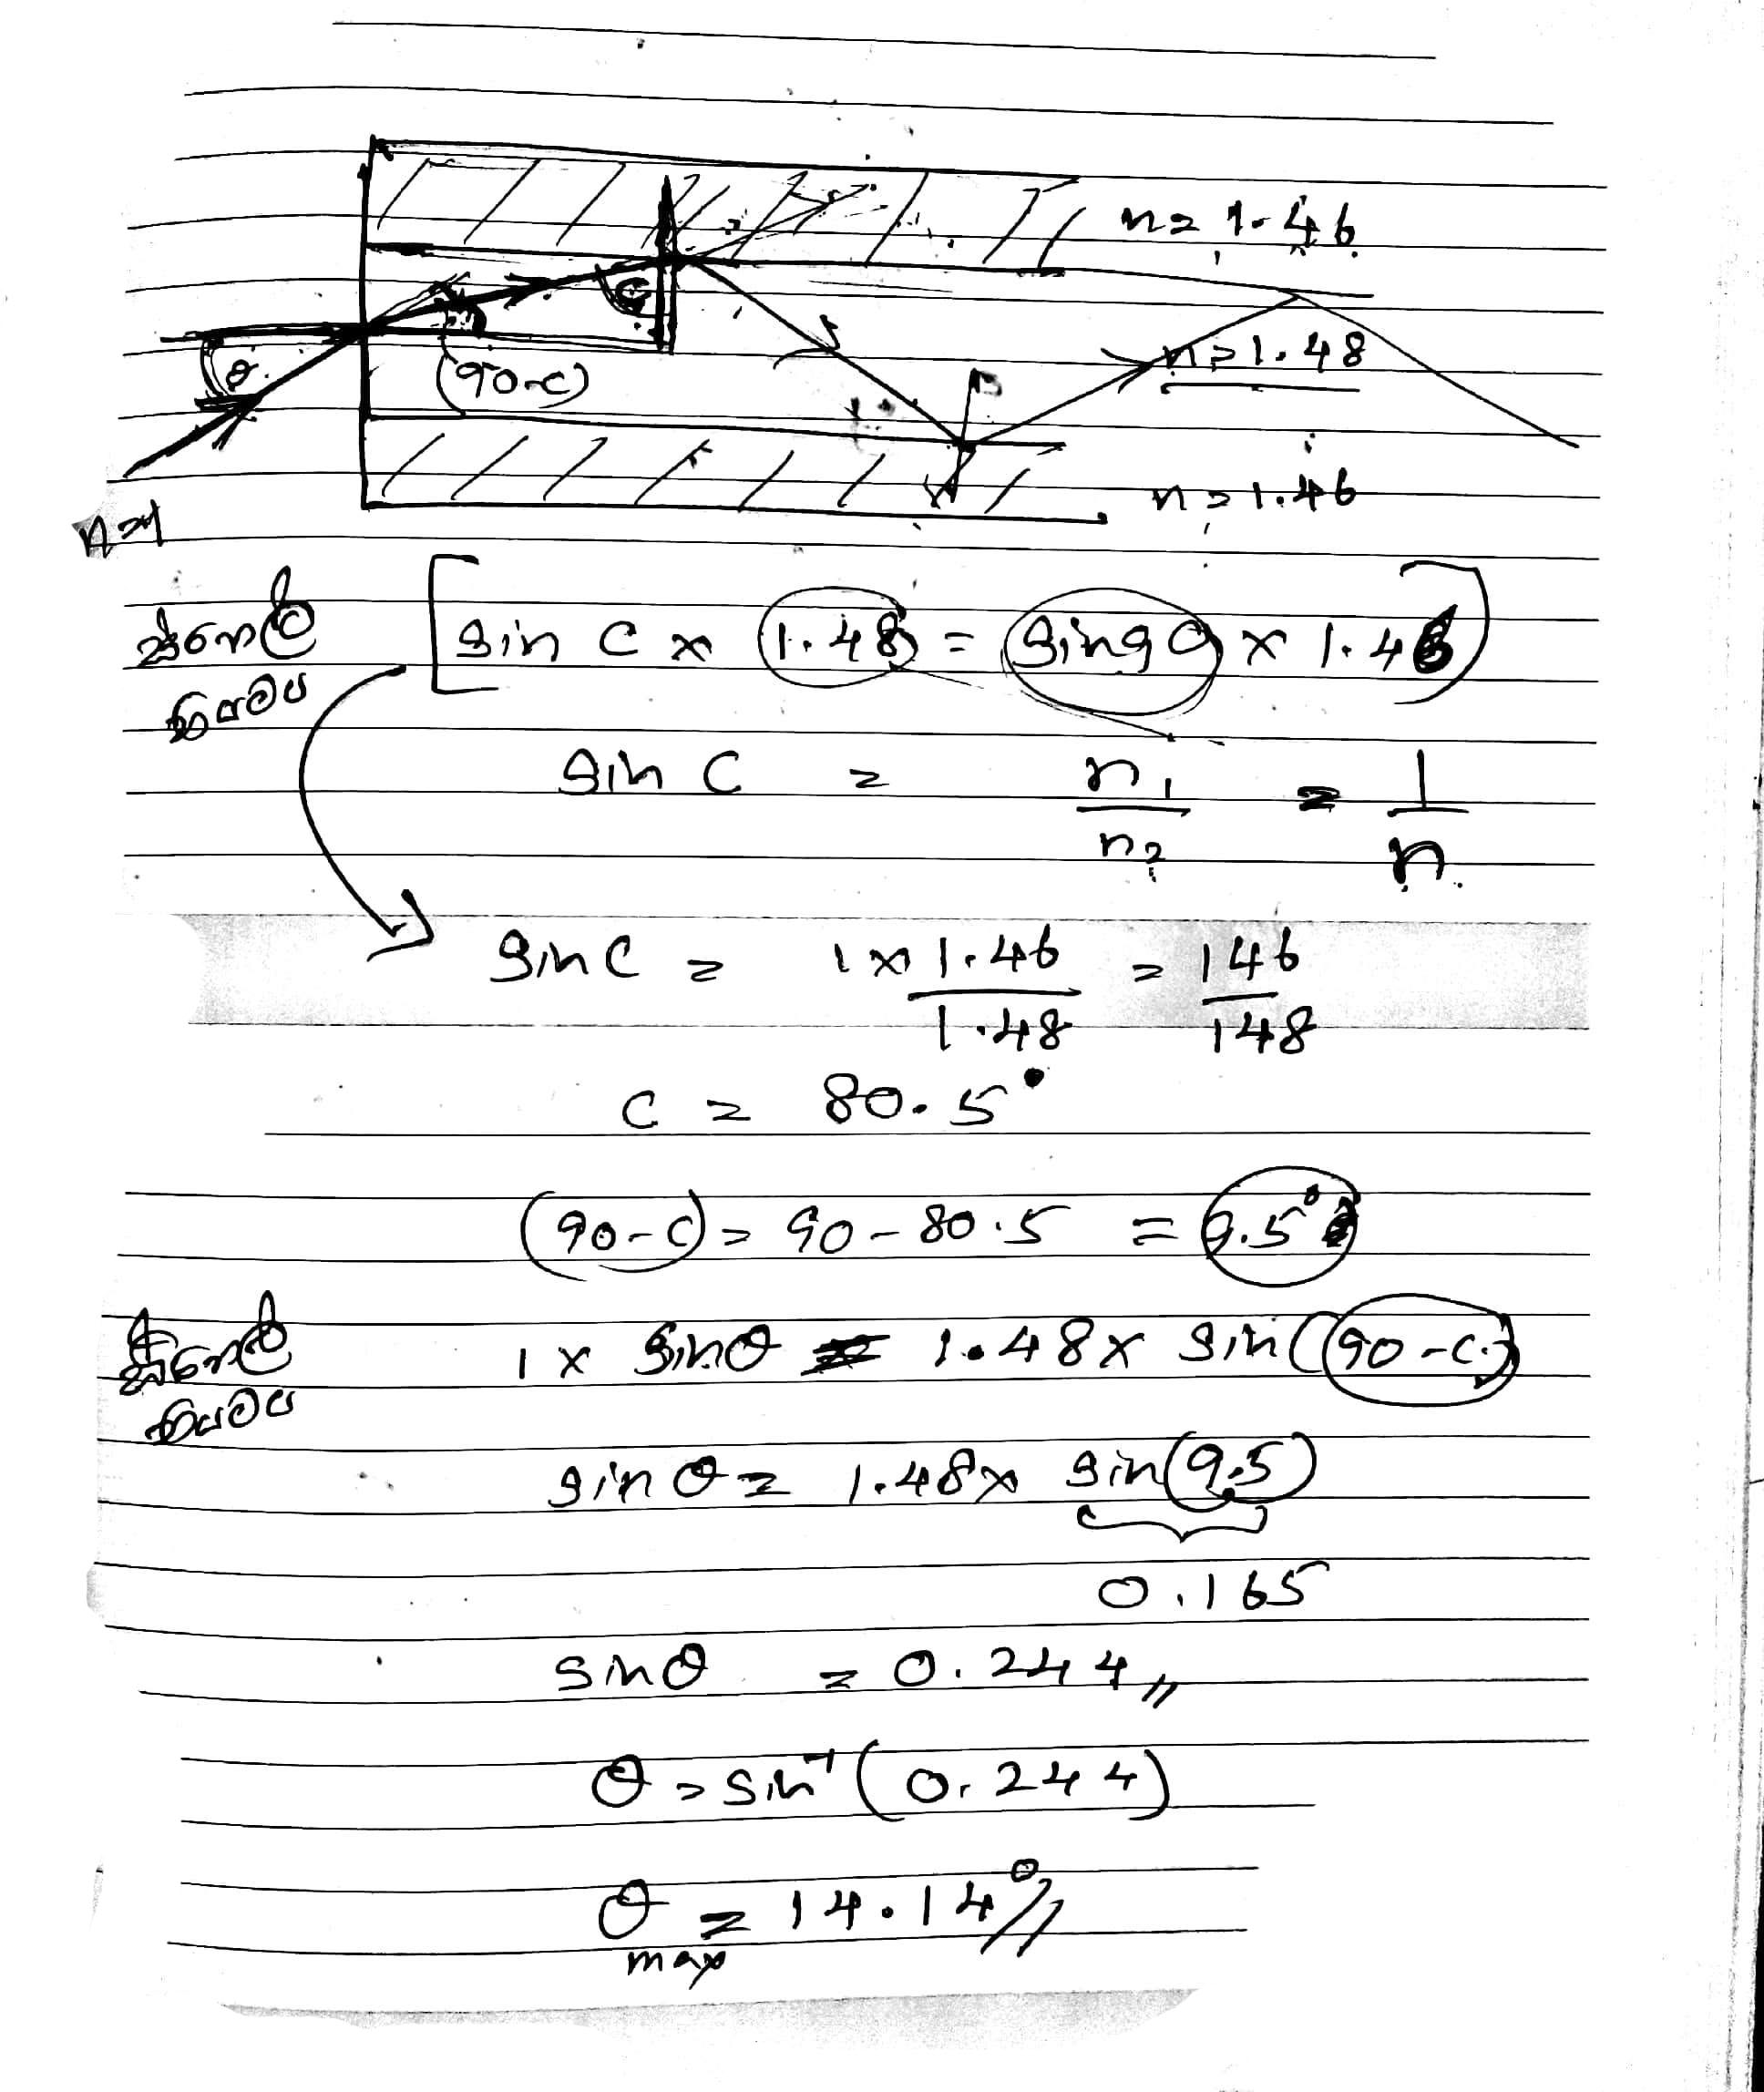 n = 1.46
C
n = 1.48
θ
(90-C)
n = 1.46
n=1
ස්නෙල් [sin C × 1.48 = sin 90 × 1.46]
නියමය
sin C = n₁/n₂ = 1/n
sin C = 1×1.46/1.48 = 146/148
C = 80.5°
(90-C) = 90-80.5 = 9.5°
ස්නෙල් 1 × sinθ = 1.48 × sin(90-C)
නියමය
sinθ = 1.48 × sin(9.5)
0.165
sinθ = 0.244
θ = sin⁻¹(0.244)
θmax = 14.14°